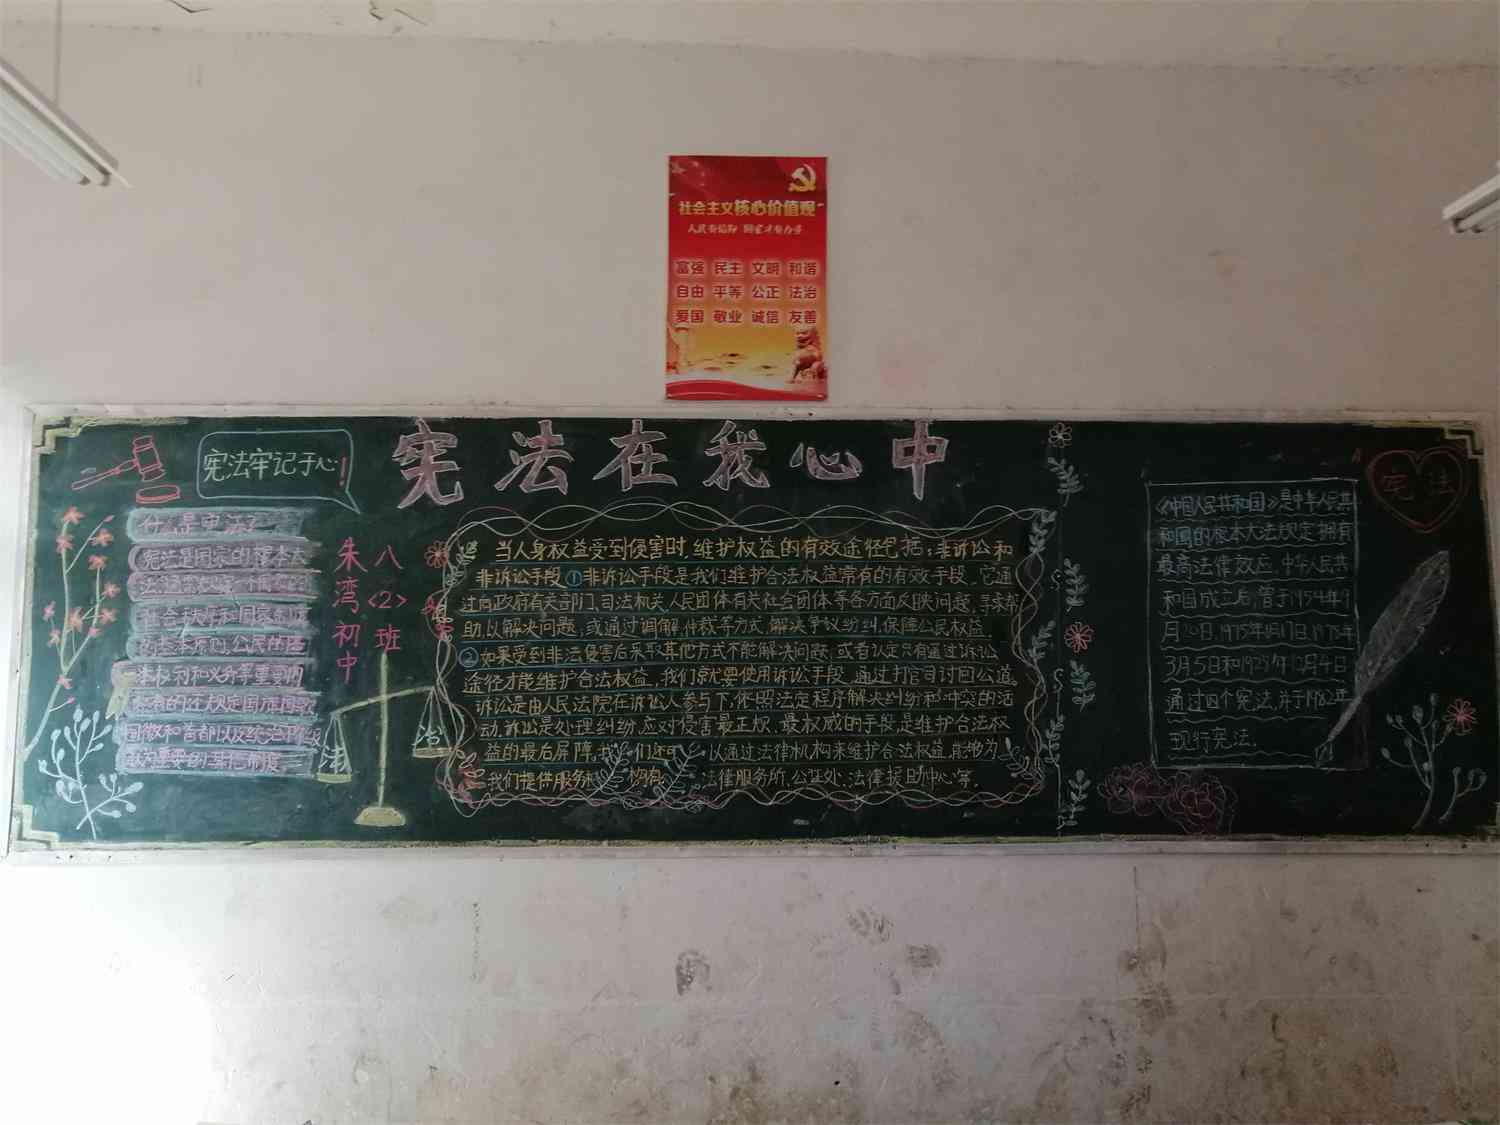 社会主义核心价值观
人民有信仰 国家才有力量
富强 民主 文明 和谐
自由 平等 公正 法治
爱国 敬业 诚信 友善
宪法在我心中
宪法牢记于心!
什么是宪法?
宪法是国家的根本大
的基本原则,公民的基
本权利和义务等重要内
国徽和首都以及统治阶级
认为重要的其他制度
朱湾初中
八<2>班
法 治
当人身权益受到侵害时,维护权益的有效途径包括:非诉讼和
非诉讼手段①非诉讼手段是我们维护合法权益常有的有效手段,它通
过向政府有关部门,司法机关,人民团体有关社会团体等各方面反映问题,寻求帮
助,以解决问题,或通过调解仲裁等方式,解决争议纠纷,保障公民权益.
②如果受到非法侵害后采取其他方式不能解决问题,或者认定只有通过诉讼
途径才能维护合法权益,我们就要使用诉讼手段,通过打官司讨回公道。
诉讼是由人民法院在诉讼人参与下,依照法定程序解决纠纷和冲突的活
动,诉讼是处理纠纷,应对侵害最正规、最权威的手段,是维护合法权
益的最后屏障,我们还可以通过法律机构来维护合法权益,能够为
我们提供服务 机构有 法律服务所,公证处、法律援助中心等。
《中国人民共和国》是中华人民共
和国的根本大法规定拥有
最高法律效应.中华人民共
和国成立后,曾于1954年9
月20日,1975年1月17日,1978年
3月5日和1982年12月4日
通过四个宪法,并于1982年
现行宪法.
宪法